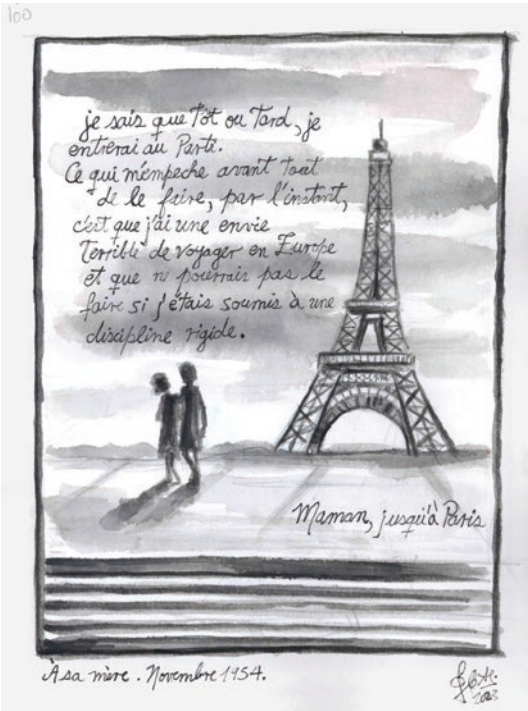 100
je sais que tôt ou Tard, je
entrerai au Parti.
Ce qui m'empeche avant tout
de le faire, par l'instant,
c'est que j'ai une envie
Terrible de voyager en Europe
et que n pourrais pas le
faire si j'étais soumis à une
discipline rigide.
Maman, jusqu'à Paris
À sa mère. Novembre 1954.
2023